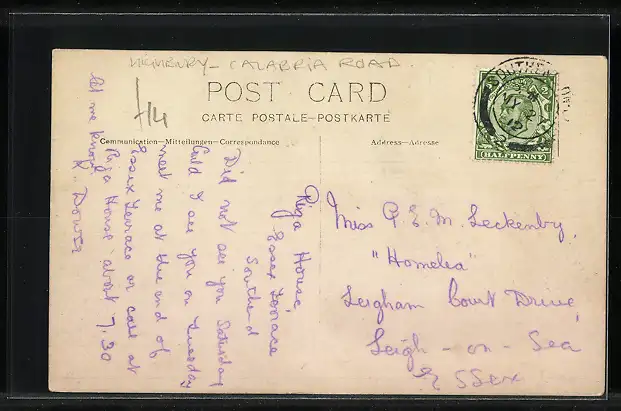 HIGHBURY - CALABRIA ROAD
POST CARD
CARTE POSTALE-POSTKARTE
Communication-Mitteilungen-Correspondance
Address-Adresse
HALFPENNY
Riga House,
Essex Terrace
Southend
Did not see you Saturday
Could I see you on Tuesday
meet me at the end of
Essex Terrace or call at
Riga House about 7.30
let me know
Miss P. E. M. Leckenby,
"Homelea"
Leigham Court Drive,
Leigh-on-Sea
Essex